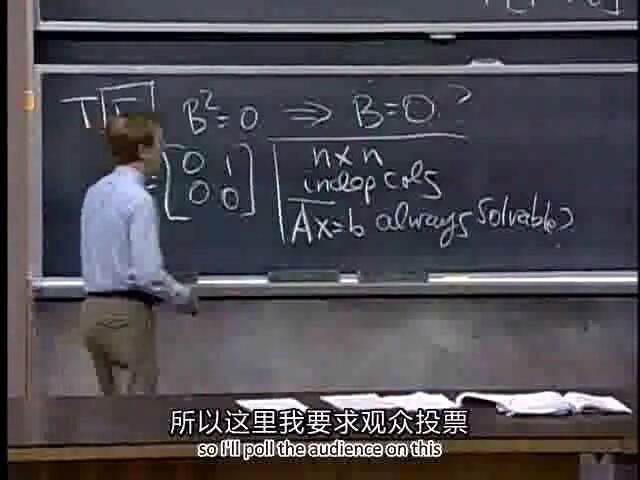 T F B²=0 ⇒ B=0?
= [0 1
0 0]
n×n
indep cols
Ax=b always solvable?
所以这里我要求观众投票
so I'll poll the audience on this